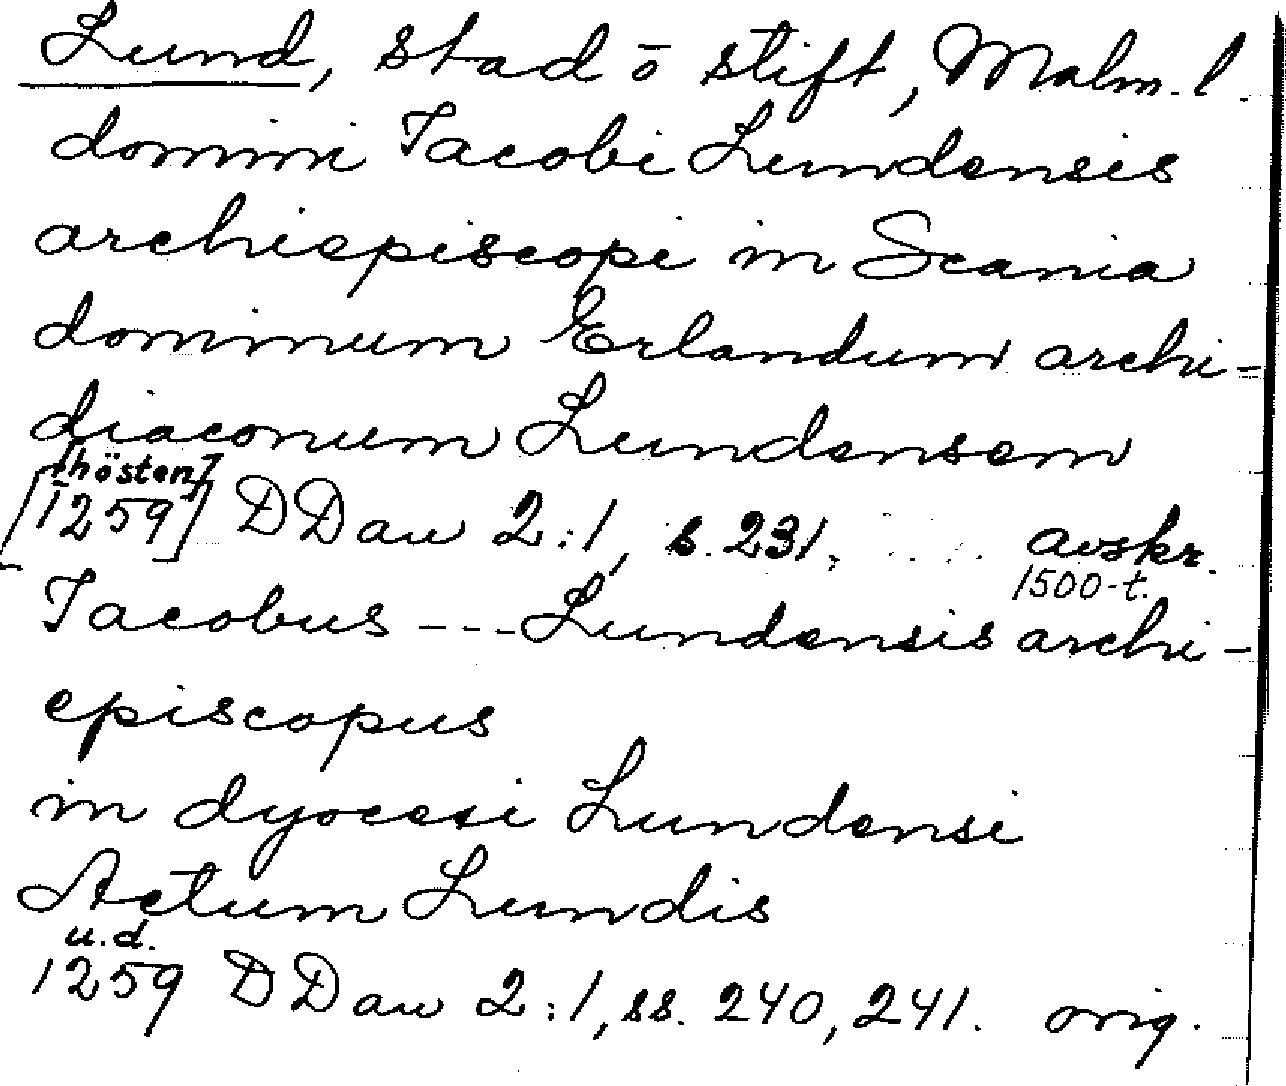 Lund, stad o stift, Malm. l.
domini Jacobi Lundensis
archiepiscopi in Scania
dominum Erlandum archi-
diaconum Lundensem
[hösten]
[1259] DDan 2:1, s. 231. avskr.
1500-t.
Jacobus --- Lundensis archi-
episcopus
in dyocesi Lundensi
Actum Lundis
u.d.
1259 DDan 2:1, ss. 240, 241. orig.